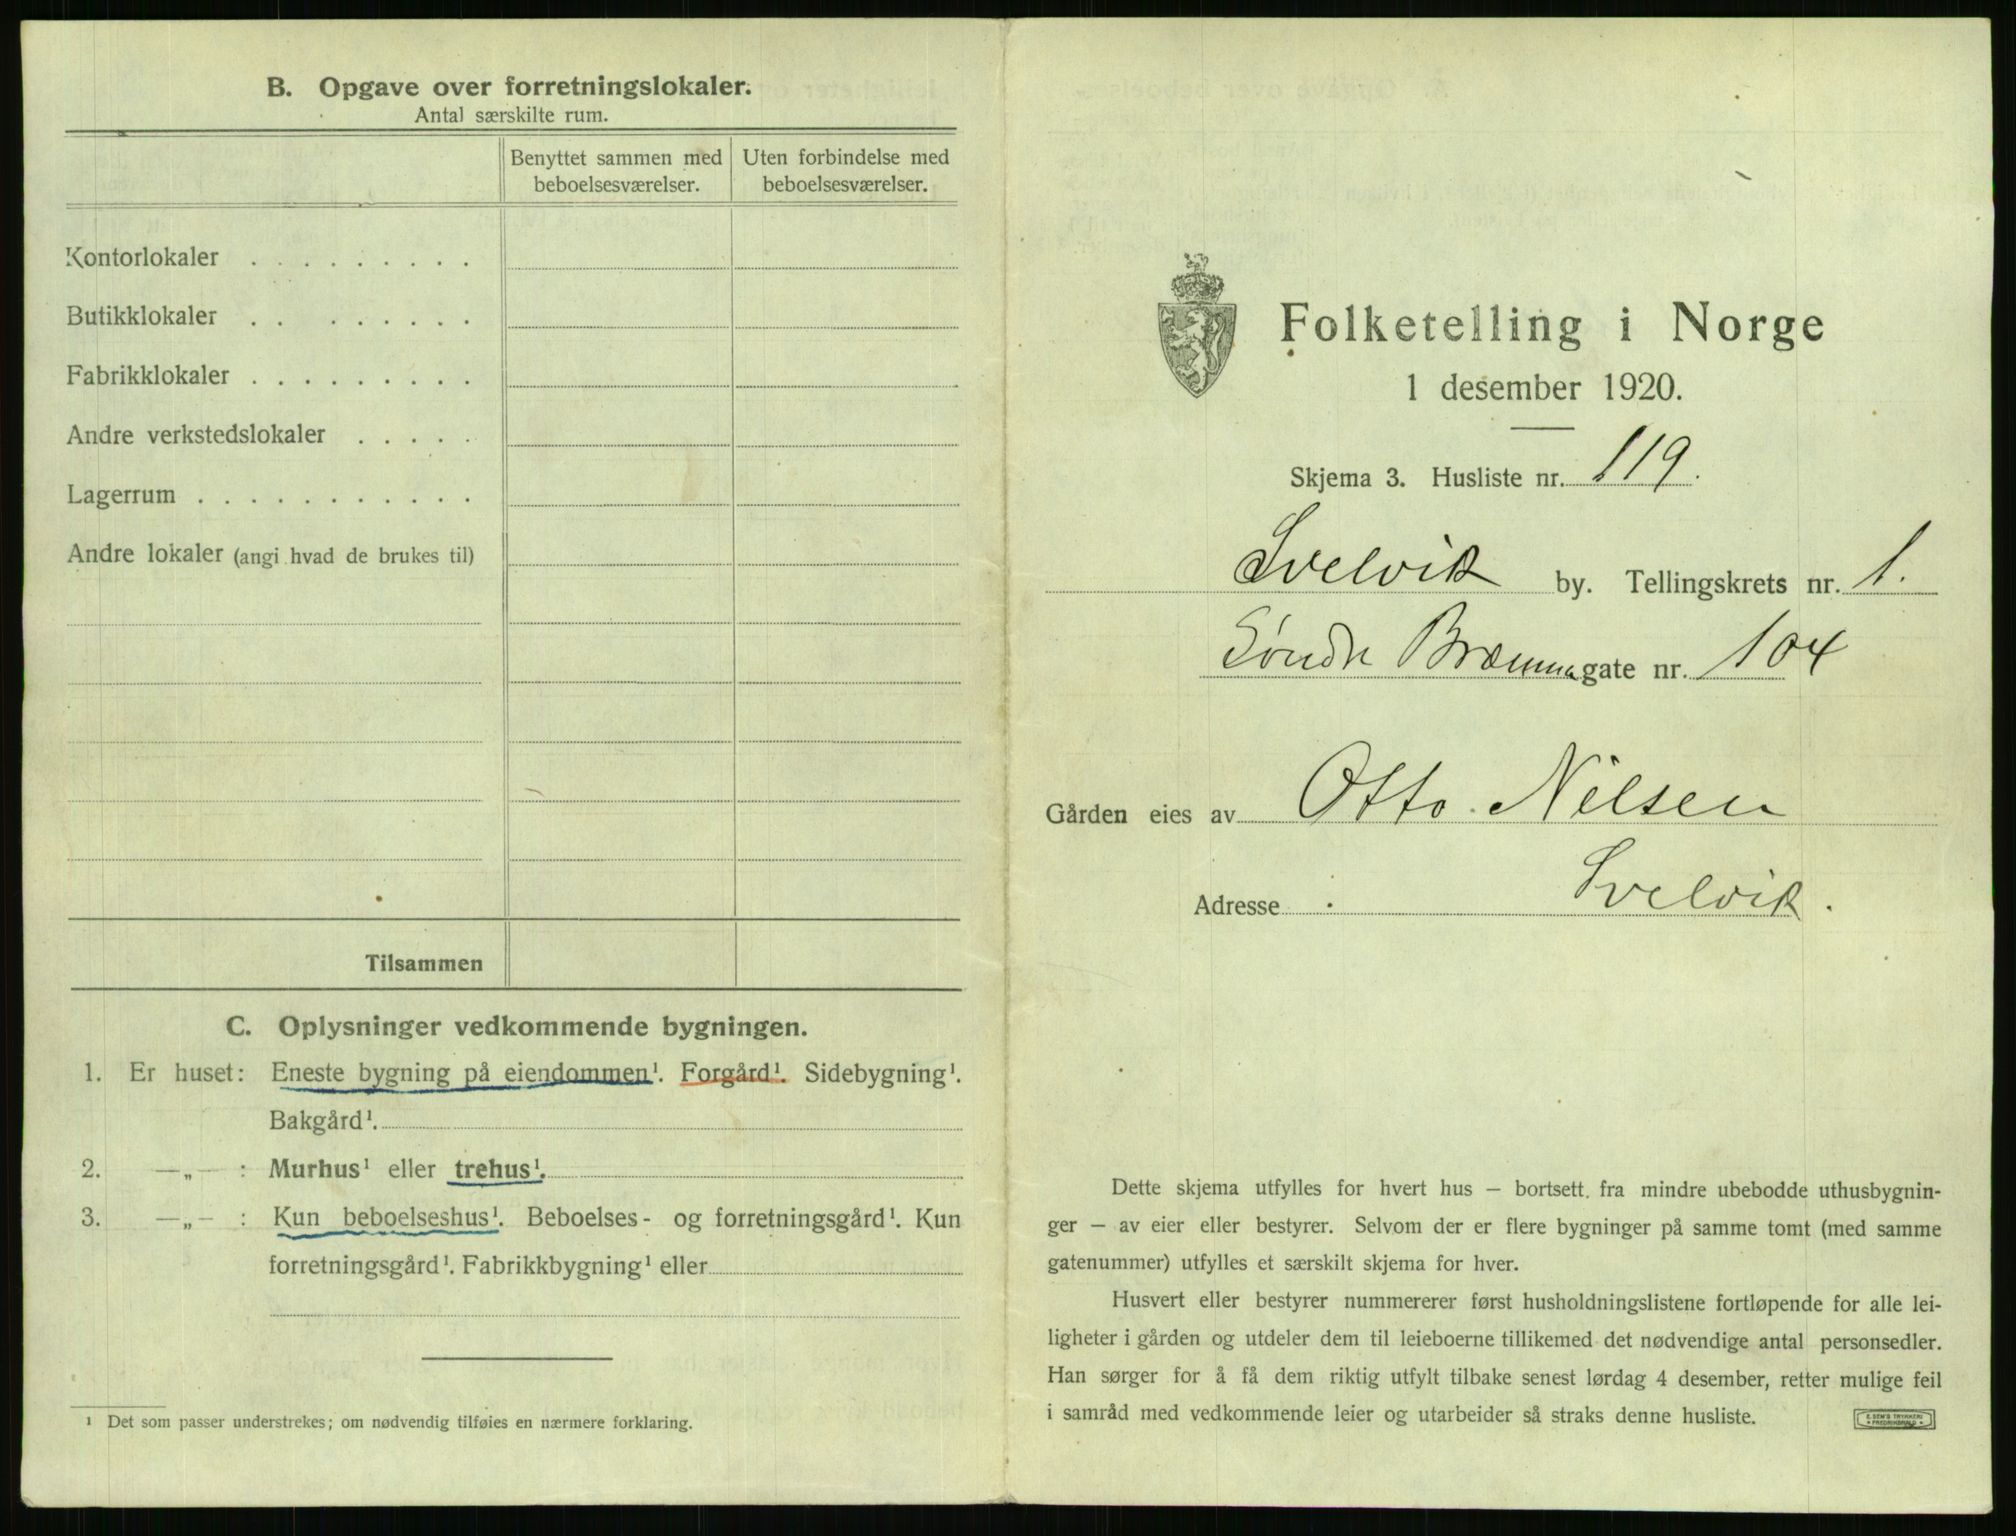 B. Opgave over forretningslokaler.
Antal særskilte rum.
Benyttet sammen med beboelsesværelser.
Uten forbindelse med beboelsesværelser.
Kontorlokaler . . . . . . . . .
Butikklokaler . . . . . . . .
Fabrikklokaler . . . . . . . . .
Andre verkstedslokaler . . . . .
Lagerrum . . . . . . . . . . .
Andre lokaler (angi hvad de brukes til)
Tilsammen
C. Oplysninger vedkommende bygningen.
1. Er huset: Eneste bygning på eiendommen¹. Forgård¹. Sidebygning¹.
Bakgård¹.
2. —„— : Murhus¹ eller trehus¹.
3. —„— : Kun beboelseshus¹. Beboelses- og forretningsgård¹. Kun
forretningsgård¹. Fabrikkbygning¹ eller
¹ Det som passer understrekes; om nødvendig tilføies en nærmere forklaring.
Folketelling i Norge
1 desember 1920.
Skjema 3. Husliste nr. 119.
Svelvik by. Tellingskrets nr. 1.
Søndre gate nr. 104
Gården eies av Otto Nilsen
Adresse Svelvik.
Dette skjema utfylles for hvert hus – bortsett fra mindre ubebodde uthusbygnin-
ger – av eier eller bestyrer. Selvom der er flere bygninger på samme tomt (med samme
gatenummer) utfylles et særskilt skjema for hver.
Husvert eller bestyrer nummererer først husholdningslistene fortløpende for alle lei-
ligheter i gården og utdeler dem til leieboerne tillikemed det nødvendige antal personsedler.
Han sørger for å få dem riktig utfylt tilbake senest lørdag 4 desember, retter mulige feil
i samråd med vedkommende leier og utarbeider så straks denne husliste.